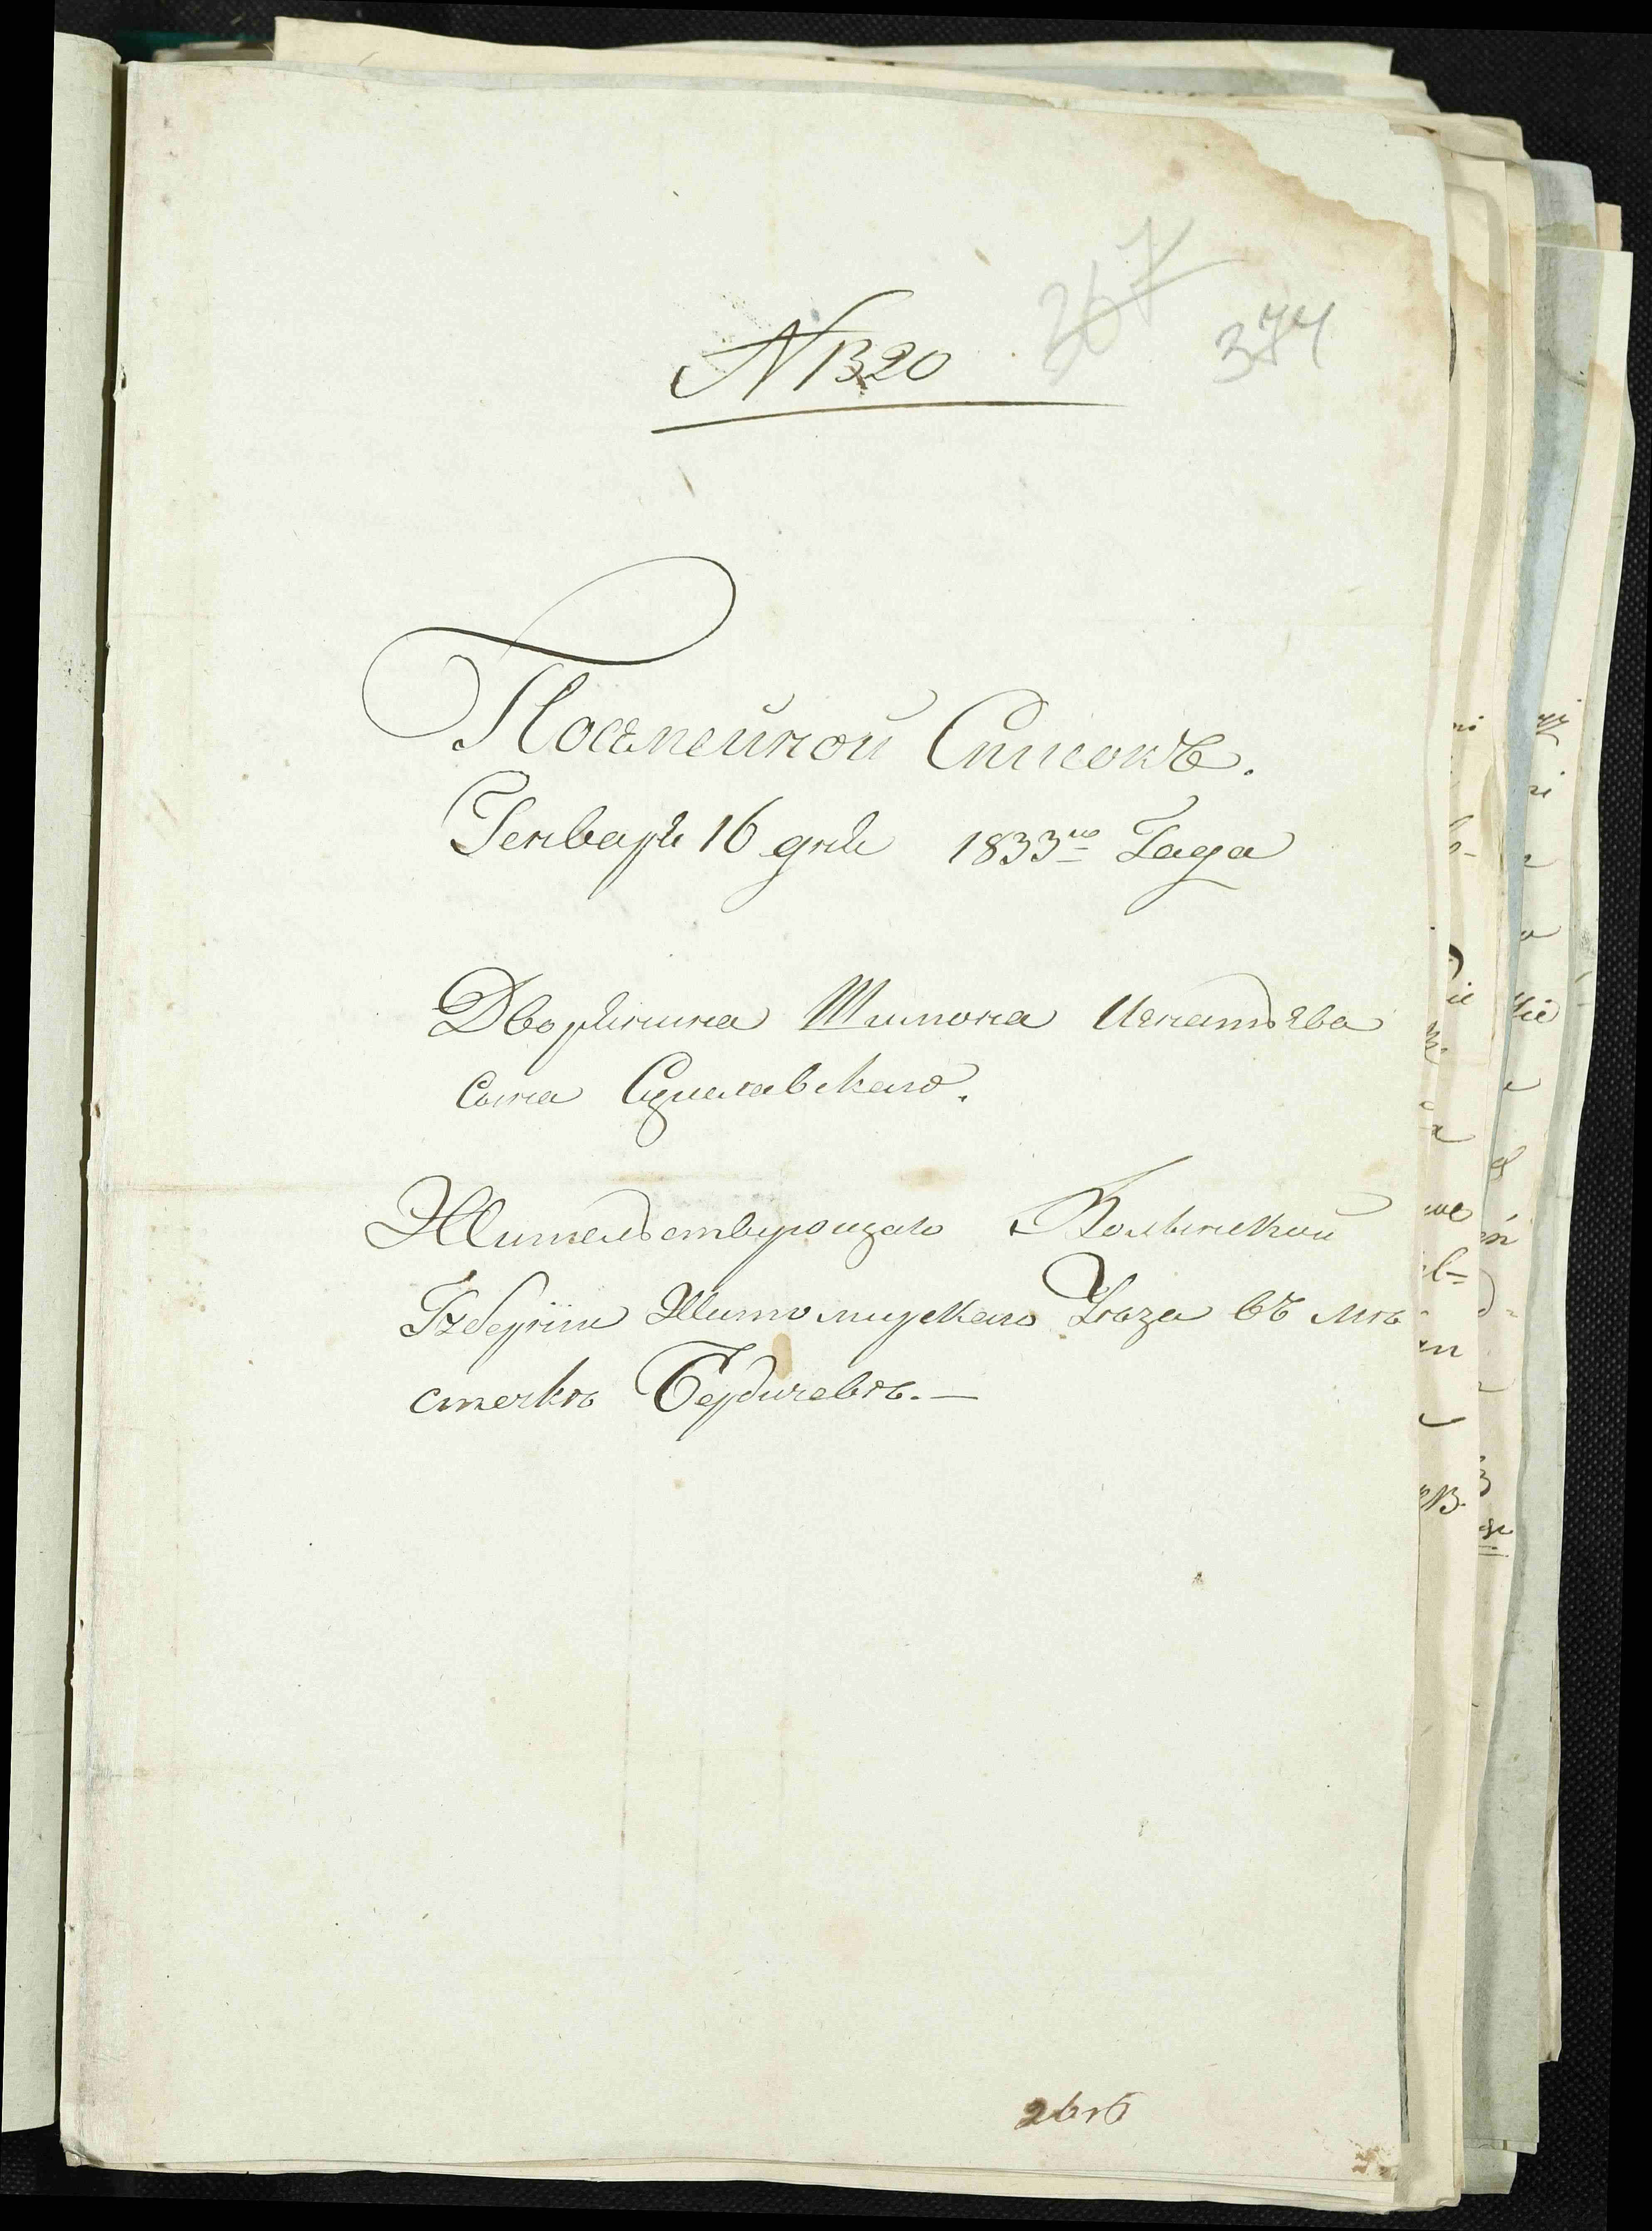 367
374
N 1320
Посемейной Списокъ.
Генваря 16 дня 1833го Года
Дворянина Шимона Игнатьева
сына
Жительствующаго Волынской
Губернии Житомирскаго Уѣзда въ мѣ
стечкѣ Бердичевѣ.—
2616